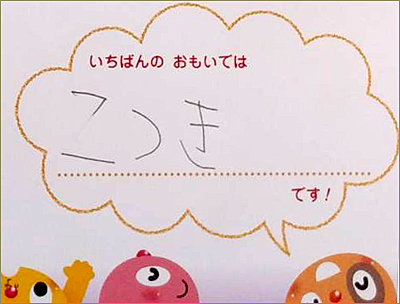 いちばんの おもいでは
こつき
です!